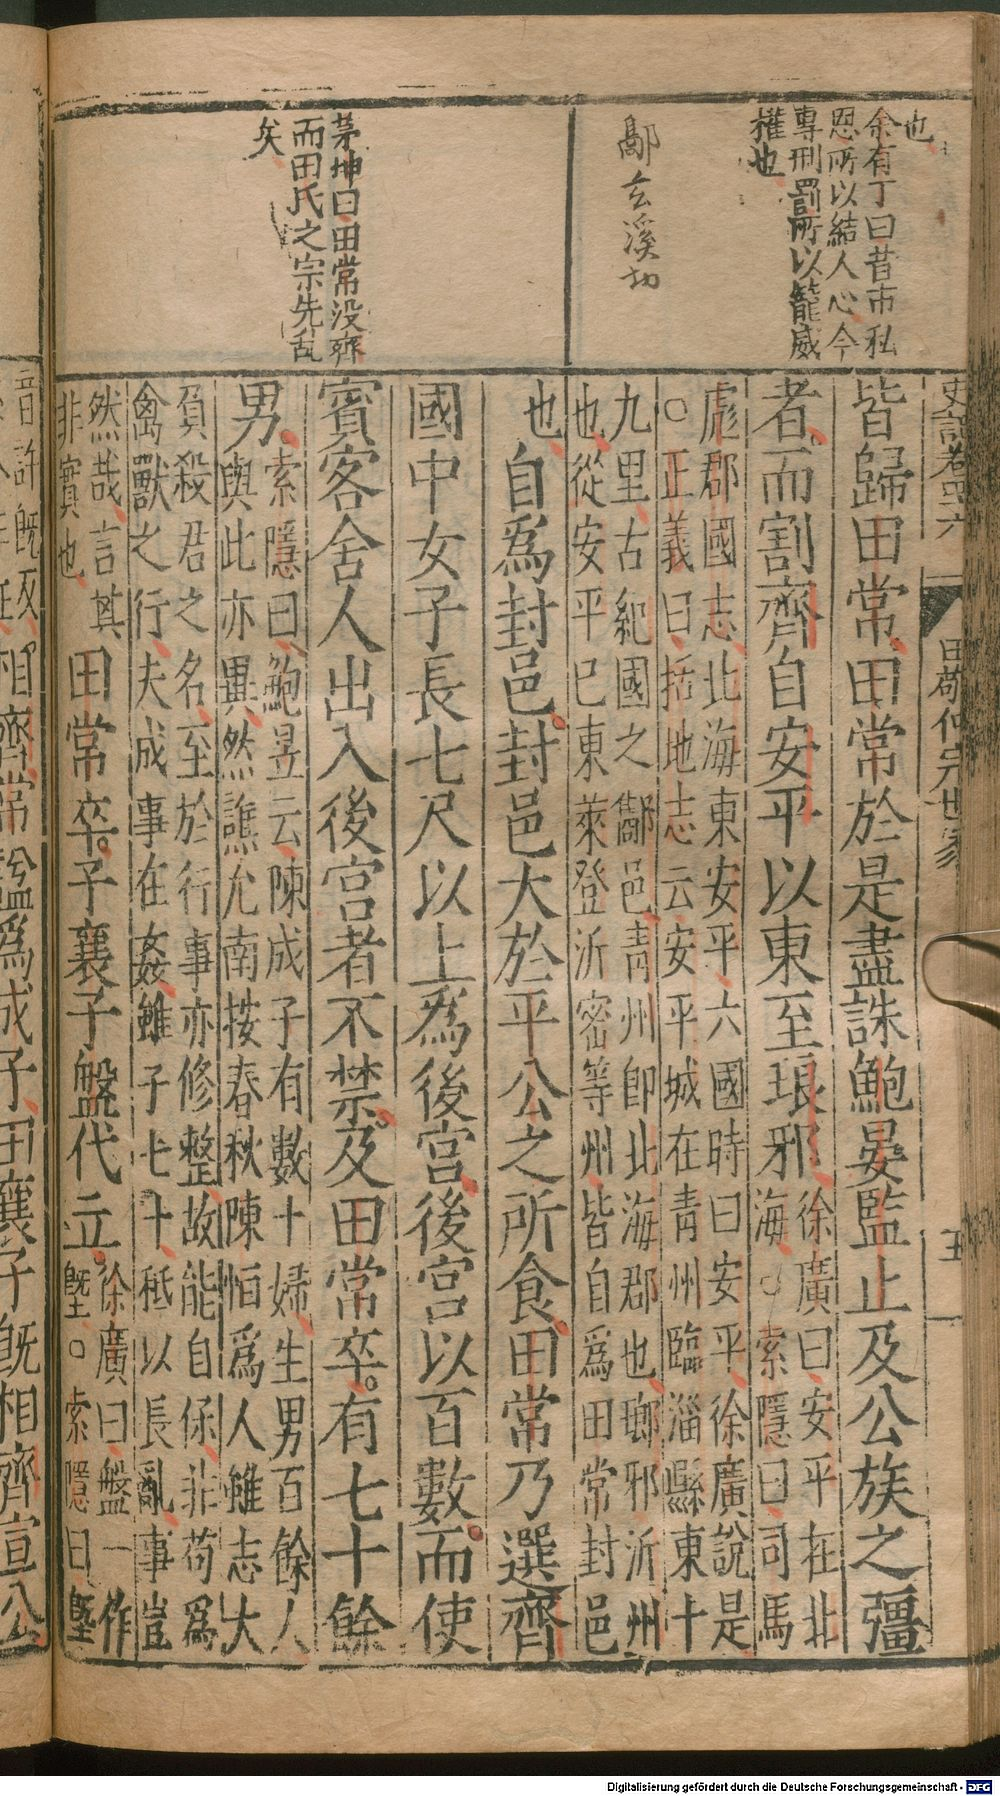 也
余有丁曰昔市私
恩所以結人心今
專刑罰所以籠威
權也
茅坤曰田常没齊
而田氏之宗先乱
矣
史記卷四十六
田敬仲完世家
五
皆歸田常田常於是盡誅鮑晏監止及公族之彊
者而割齊自安平以東至琅邪
徐廣曰安平在北
海○索隱曰司馬
彪郡國志北海東安平六國時曰安平徐廣說是
○正義曰括地志云安平城在青州臨淄縣東十
九里古紀國之酅邑青州卽北海郡也瑯邪沂州
也從安平已東萊登沂密等州皆自爲田常封邑
也
自爲封邑封邑大於平公之所食田常乃選齊
國中女子長七尺以上爲後宮後宮以百數而使
賓客舍人出入後宮者不禁及田常卒有七十餘
男
索隱曰鮑昱云陳成子有數十婦生男百餘人
與此亦異然譙允南按春秋陳恒爲人雖志大
負殺君之名至於行事亦修整故能自保非苟爲
禽獸之行夫成事在姦雖子七十秪以長亂事豈
然哉言其
非實也
田常卒子襄子盤代立
徐廣曰盤一作
墍○索隱曰墍
音許旣反
相齊常謚爲成子田襄子旣相齊宣公
Digitalisierung gefördert durch die Deutsche Forschungsgemeinschaft - DFG